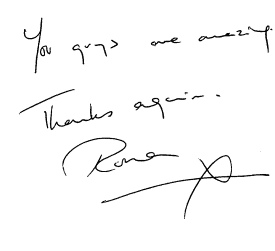 You guys are amazing.
Thanks again.